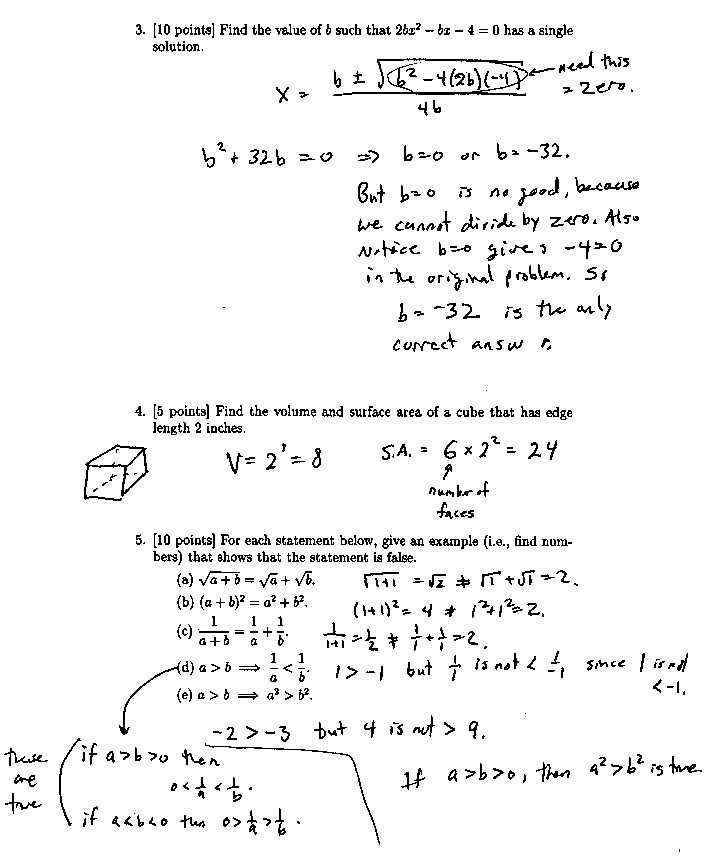 3. [10 points] Find the value of b such that 2bx² − bx − 4 = 0 has a single
solution.
x = (b ± √(b² − 4(2b)(−4))) / 4b ← need this
= zero.
b² + 32b = 0 ⇒ b=0 or b=−32.
But b=0 is no good, because
we cannot divide by zero. Also
Notice b=0 gives −4=0
in the original problem. So
b = −32 is the only
correct answ r.
4. [5 points] Find the volume and surface area of a cube that has edge
length 2 inches.
V = 2³ = 8 S.A. = 6 × 2² = 24
↑
number of
faces
5. [10 points] For each statement below, give an example (i.e., find num-
bers) that shows that the statement is false.
(a) √(a+b) = √a + √b. √(1+1) = √2 ≠ √1 + √1 = 2.
(b) (a + b)² = a² + b². (1+1)² = 4 ≠ 1²+1² = 2.
(c) 1/(a+b) = 1/a + 1/b. 1/(1+1) = 1/2 ≠ 1/1 + 1/1 = 2.
(d) a > b ⟹ 1/a < 1/b. 1 > −1 but 1/1 is not < 1/−1 since 1 is not
< −1.
(e) a > b ⟹ a² > b².
−2 > −3 but 4 is not > 9.
If a>b>0, then a²>b² is true
these
are
true
if a>b>0 then
0 < 1/a < 1/b.
if a<b<0 then 0 > 1/a > 1/b.